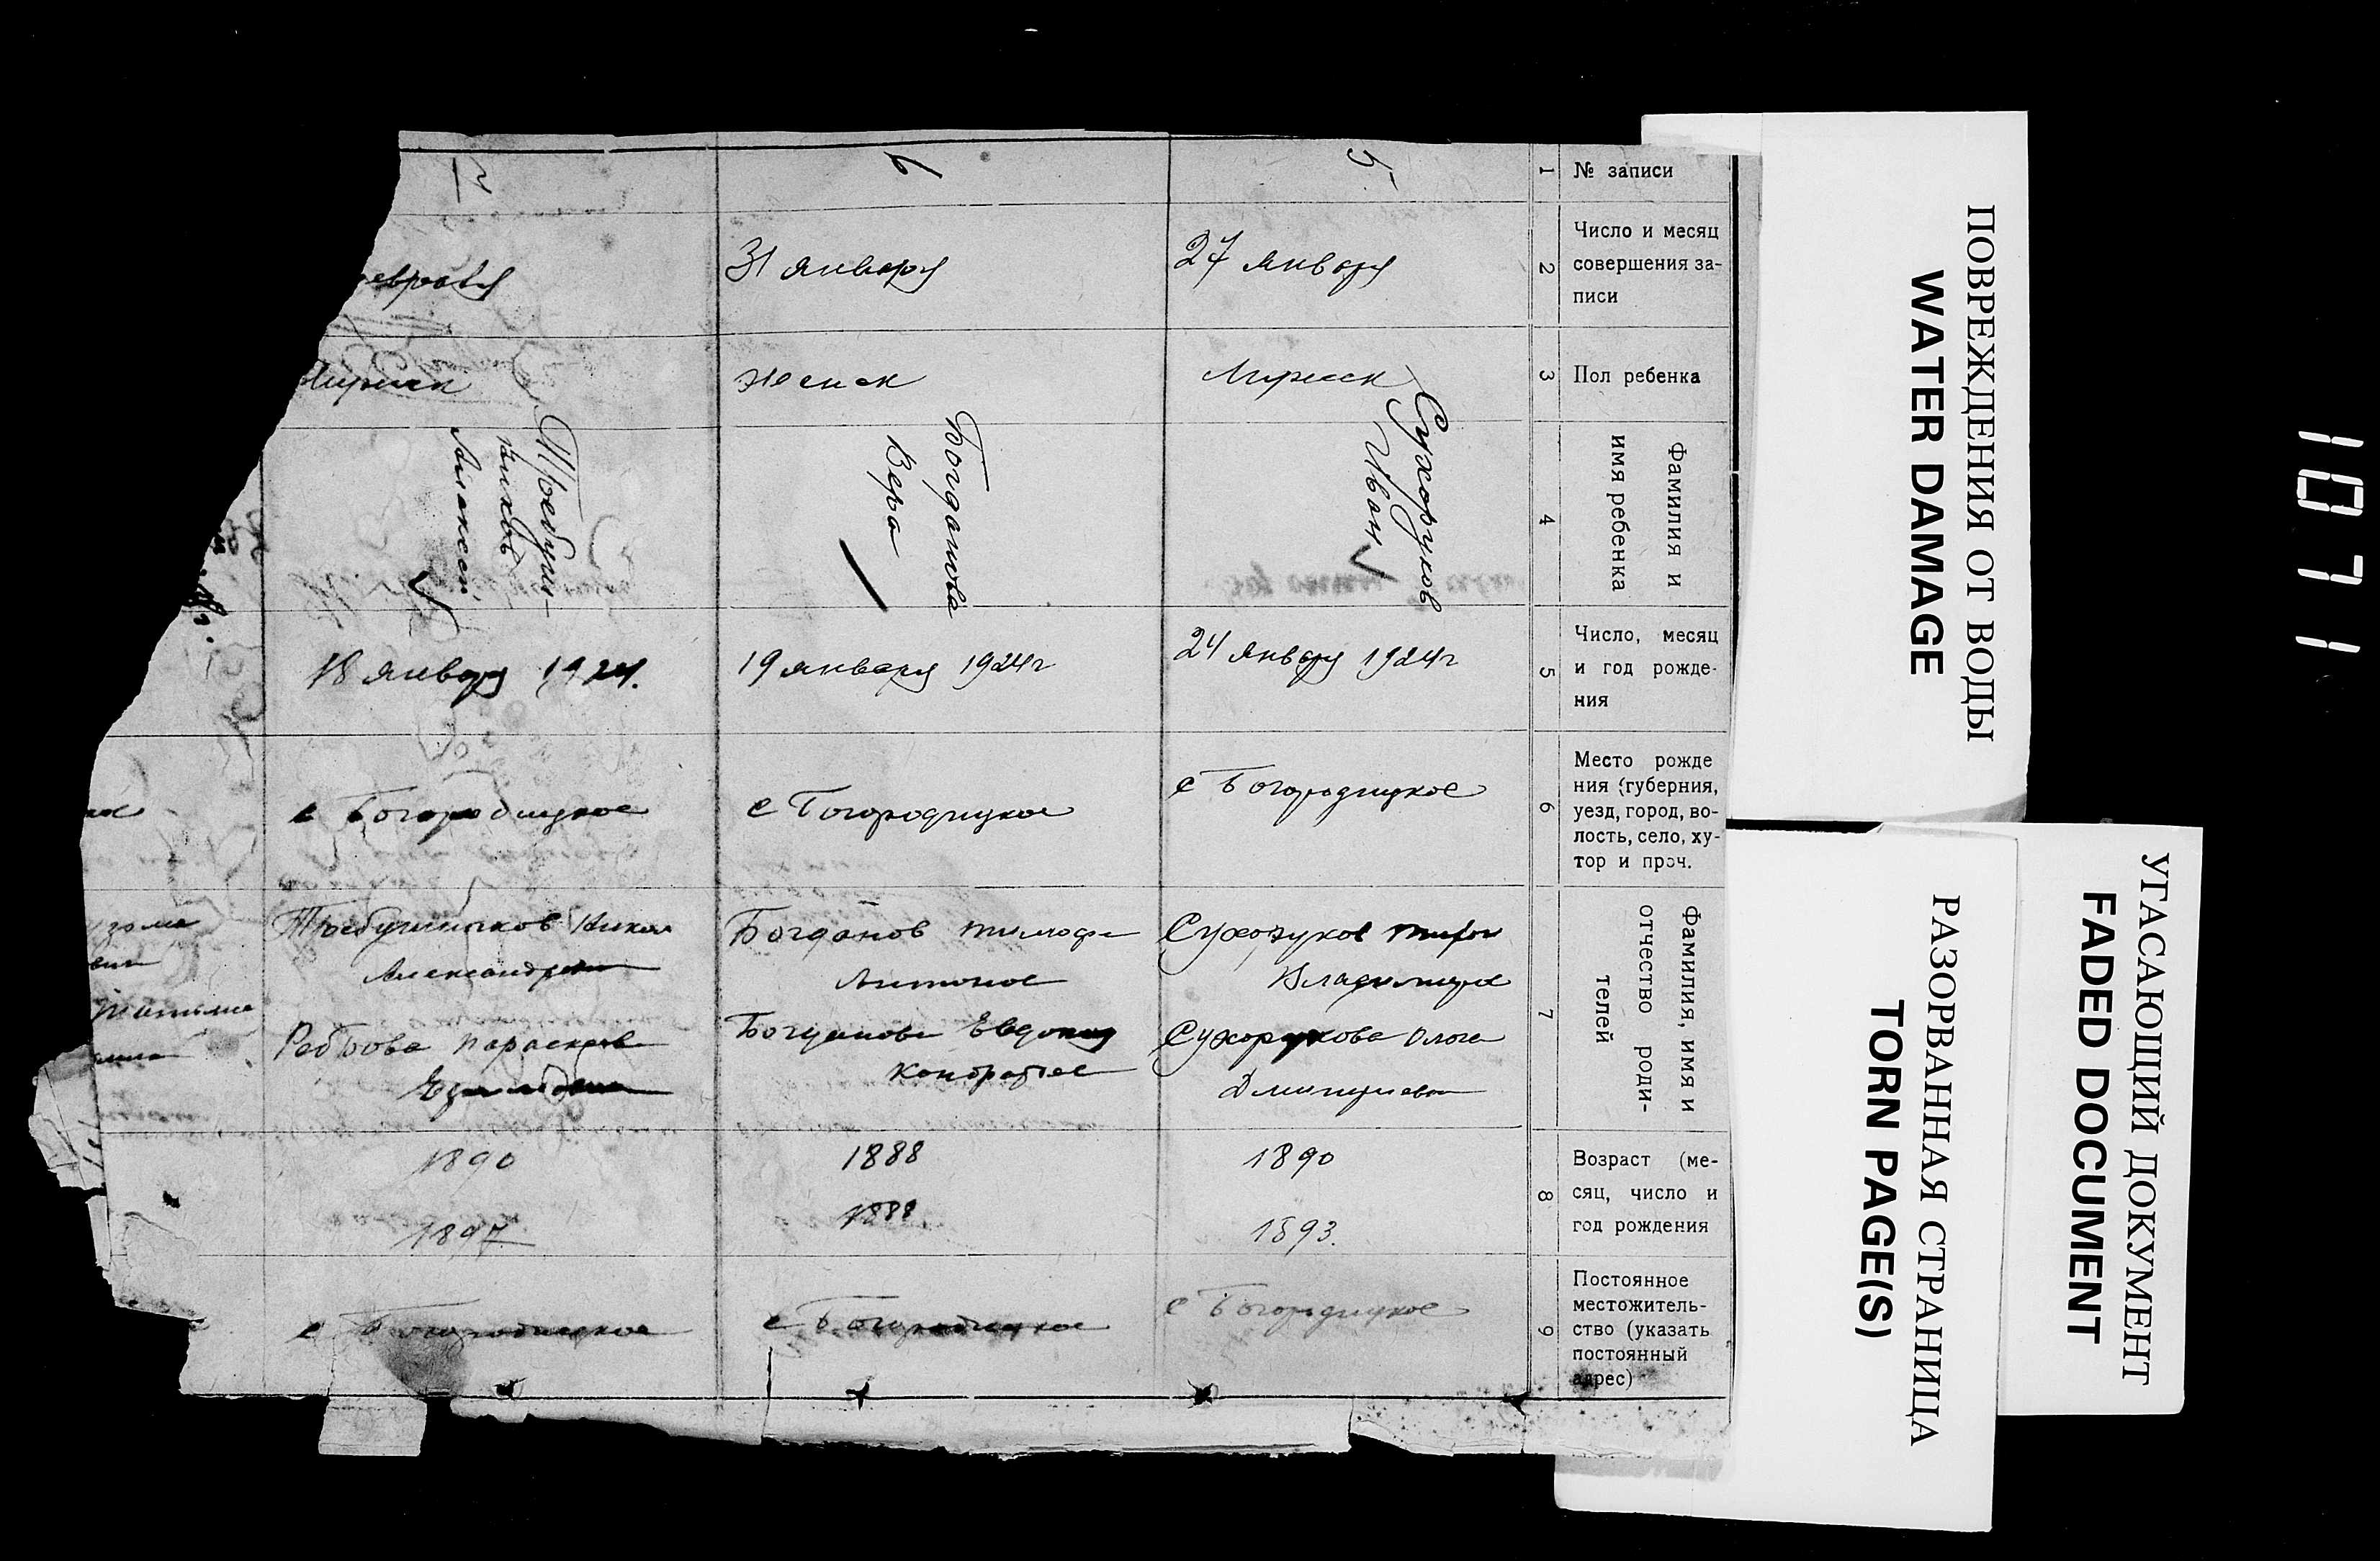 № записи
1
Число и месяц
совершения за-
писи
2
Пол ребенка
3
Фамилия и
имя ребенка
4
Число, месяц
и год рожде-
ния
5
Место рожде
ния (губерния,
уезд, город, во-
лость, село, ху-
тор и проч.
6
Фамилия, имя и
отчество роди-
телей
7
Возраст (ме-
сяц, число и
год рождения
8
Постоянное
местожитель-
ство (указать
постоянный
адрес)
9
5
27 января
Мужск
Сухоруков
Иван
24 января 1924г
с Богородицкое
Сухоруков
Сухорукова
Дмитриевн
1890
1893.
с Богородицкое
6
31 января
женск
Богданова
Вера
19 января 1924г
с Богородицкое
Богданов Тимофе
Антонов
Богданова Евдокия
Кондратьев
1888
1888
с Богородицкое
7
евраля
Мужск
Алексей
18 января 1924.
с Богородицкое
Александров
Реброва Параскев
1890
1897
с Богородицкое
ПОВРЕЖДЕНИЯ ОТ ВОДЫ
WATER DAMAGE
УГАСАЮЩИЙ ДОКУМЕНТ
FADED DOCUMENT
РАЗОРВАННАЯ СТРАНИЦА
TORN PAGE(S)
1071